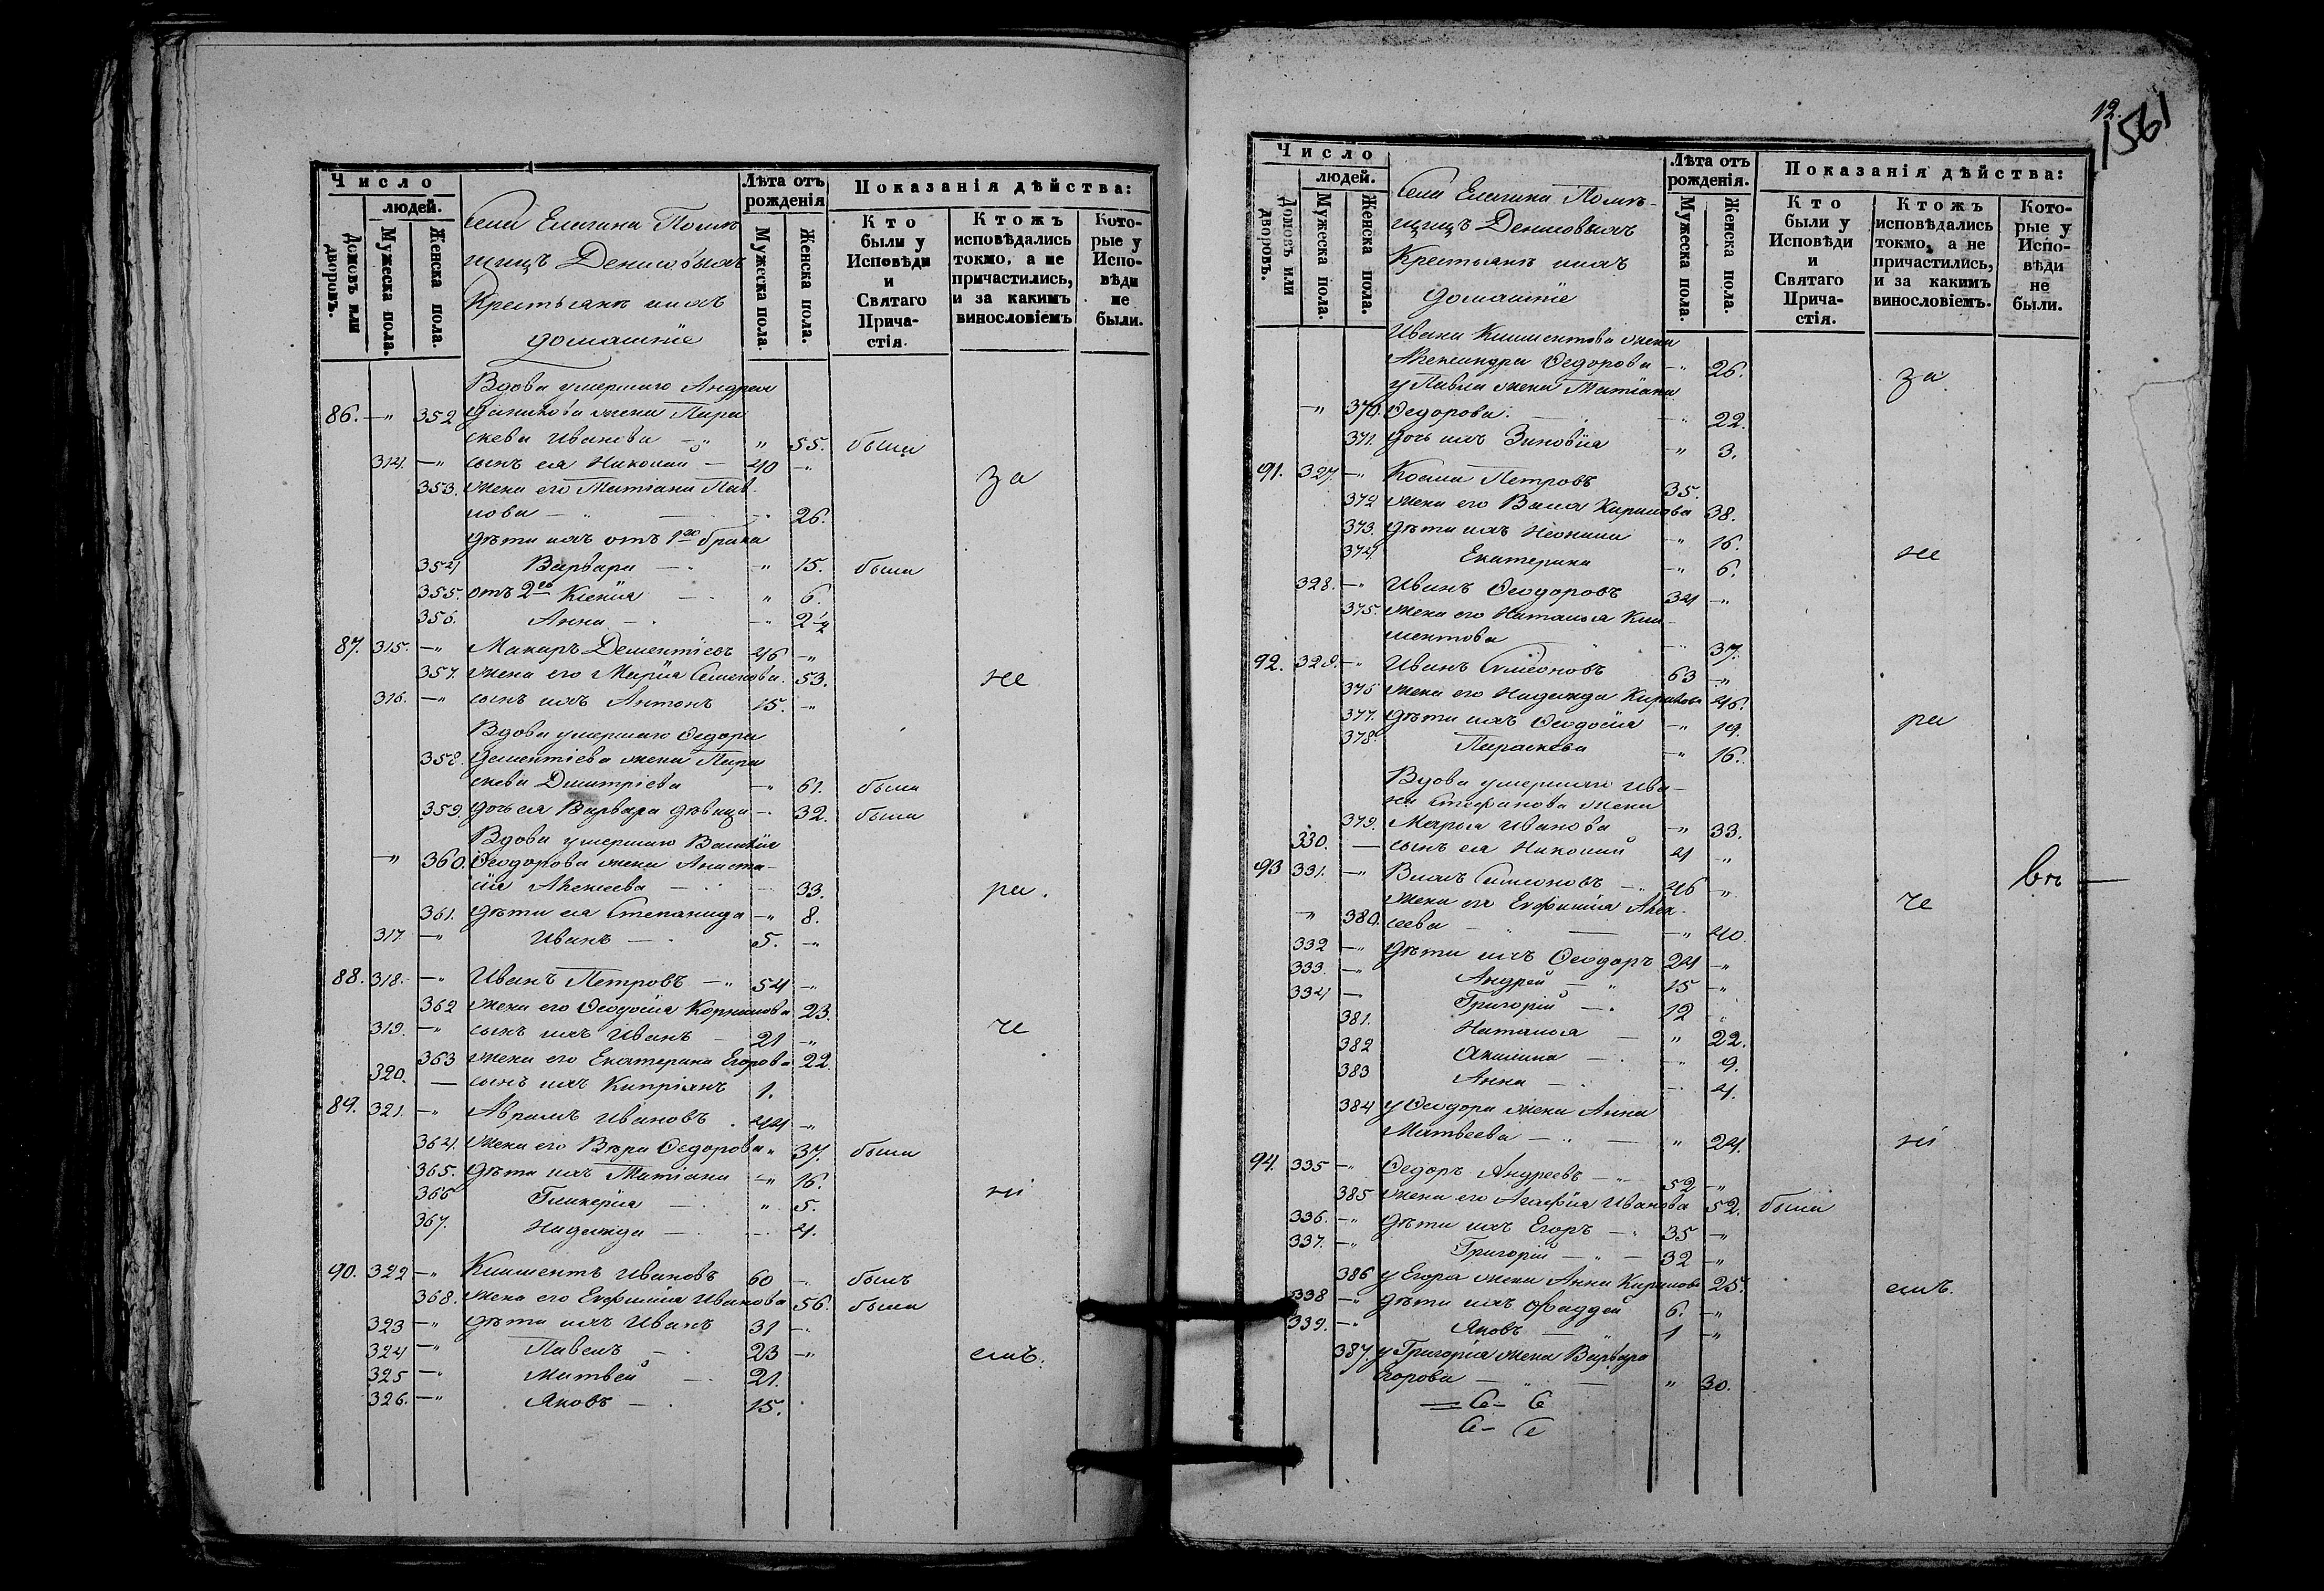 Число
людей.
Домовъ или дворовъ.
Мужеска пола.
Женска пола.
Села Елагина Помѣ
щицъ Денисовыхъ
Крестьяне ихъ
домашніе
Лѣта отъ рожденія
Мужеска пола.
Женска пола.
Показанія дѣйства:
Кто были у Исповѣди и Святаго Прича-стія.
Ктожъ исповѣдались токмо, а не причастились, и за какимъ винословіемъ
Кото-рые у Испо-вѣди не были.
Вдова умершаго Андрея
86. —„ 352 Данилова жена Пара
скева Иванова —„ „ 55. была
314. —„ сынъ ея Николай — 40 —„
353. жена его Татіана Пав за
лова — „ — —„ 26.
дѣти ихъ отъ 1го брака
354 Варвара — „ —„ 15. была
355. отъ 2го Ксенія — „ 6.
356. Анна — —„ 2½
87. 315. —„ Макаръ Дементіевъ 46 —„
357. жена его Марія Семенова. 53. не
316. —„ сынъ ихъ Антонъ 15. —„
Вдова умершаго Ѳедора
358. Дементіева жена Пара
скева Димитріева —„ 61. была
359. дочь ея Варвара дѣвица —„ 32. была
Вдова умершаго Василія
—„ 360. Ѳеодорова жена Анаста-
сія Алексеева — 33. ра.
361. дѣти ея Степанида —„ 8.
317. —„ Иванъ — 5. —„
88. 318. —„ Иванъ Петровъ —„ 54 —„
362 жена его Ѳеодосія Корнилова 23.
319. —„ сынъ ихъ Иванъ — 21 —„ че
363 жена его Екатерина Егорова 22
320. — сынъ ихъ Кипріянъ 1.
89. 321. —„ Аврамъ Ивановъ . 44 —„
364. жена его Вѣра Ѳедорова „ 37. была
365. дѣти ихъ Татіана —„ 16.
366 Гликерія — „ 5. ні
367. Надежда — —. 4.
90. 322 —„ Климентъ Ивановъ 60 —„ былъ
368. жена его Евфимія Иванова 56. была
323 —„ дѣти ихъ Иванъ 31 —„
324 —„ Павелъ — 23 —„ емъ.
325 —„ Матвей — 21.
326. —„ Яковъ — 15.
12.
1561
Число
людей.
Домовъ или дворовъ.
Мужеска пола.
Женска пола.
Села Елагина Помѣ-
щицъ Денисовыхъ
Крестьяне ихъ
домашніе
Лѣта отъ рожденія.
Мужеска пола.
Женска пола.
Показанія дѣйства:
Кто были у Исповѣди и Святаго Прича-стія.
Ктожъ исповѣдались токмо, а не причастились, и за какимъ винословіемъ.
Кото-рые у Испо-вѣди не были.
Ивана Климентова жена
Александра Ѳедорова —„ 26. за
у Павла жена Татіана
—„ 370. Ѳедорова. — —„ 22.
371. дочь ихъ Зиновія —„ 3.
91. 327. —„ Косма Петровъ 35.
372 жена его Васса Кирилова 38.
373. дѣти ихъ Неонила „ 16.
374. Екатерина —„ 6. не
328. —„ Иванъ Ѳеодоровъ 34 —„
375. жена его Наталья Кли-
ментова —„ 37.
92. 329. —„ Иванъ Симеоновъ 63 —„
376 жена его Надежда Кирилова 46.
377. дѣти ихъ Ѳеодосія —„ 19. ра
378. Параскева „ 16.
Вдова умершаго Ива-
на Стефанова жена
379. Марья Иванова —„ 33.
330. — сынъ ея Николай 4 —„
93 331. —„ Власъ Симеоновъ —„ 46 —„ въ —
жена его Евфимія Алек- че
—„ 380. сеева — — —„ 40.
332 —„ дѣти ихъ Ѳеодоръ 24 —„
333. —„ Андрей — „ 15 —„
334 — Григорій — 12 „
381. Наталья — „ 22.
382 Акилина — —„ 9.
383 Анна — —. 4.
384 у Ѳеодора жена Анна
Матвеева —„ — „ 24. ні
94. 335 —„ Ѳедоръ Андреевъ —„ 52 —„
385 жена его Агафія Иванова 52. была
336. —„ дѣти ихъ Егоръ —„ 35 —„
337. —„ Григорій —„ — 32 —„
386 у Егора жена Анна Кирилова 25.
338 —„ дѣти ихъ Фаддей 6. —„ емъ.
339. —„ Яковъ — „ 1 —„
387. у Григорія жена Варвара
Егорова — „ — „ 30.